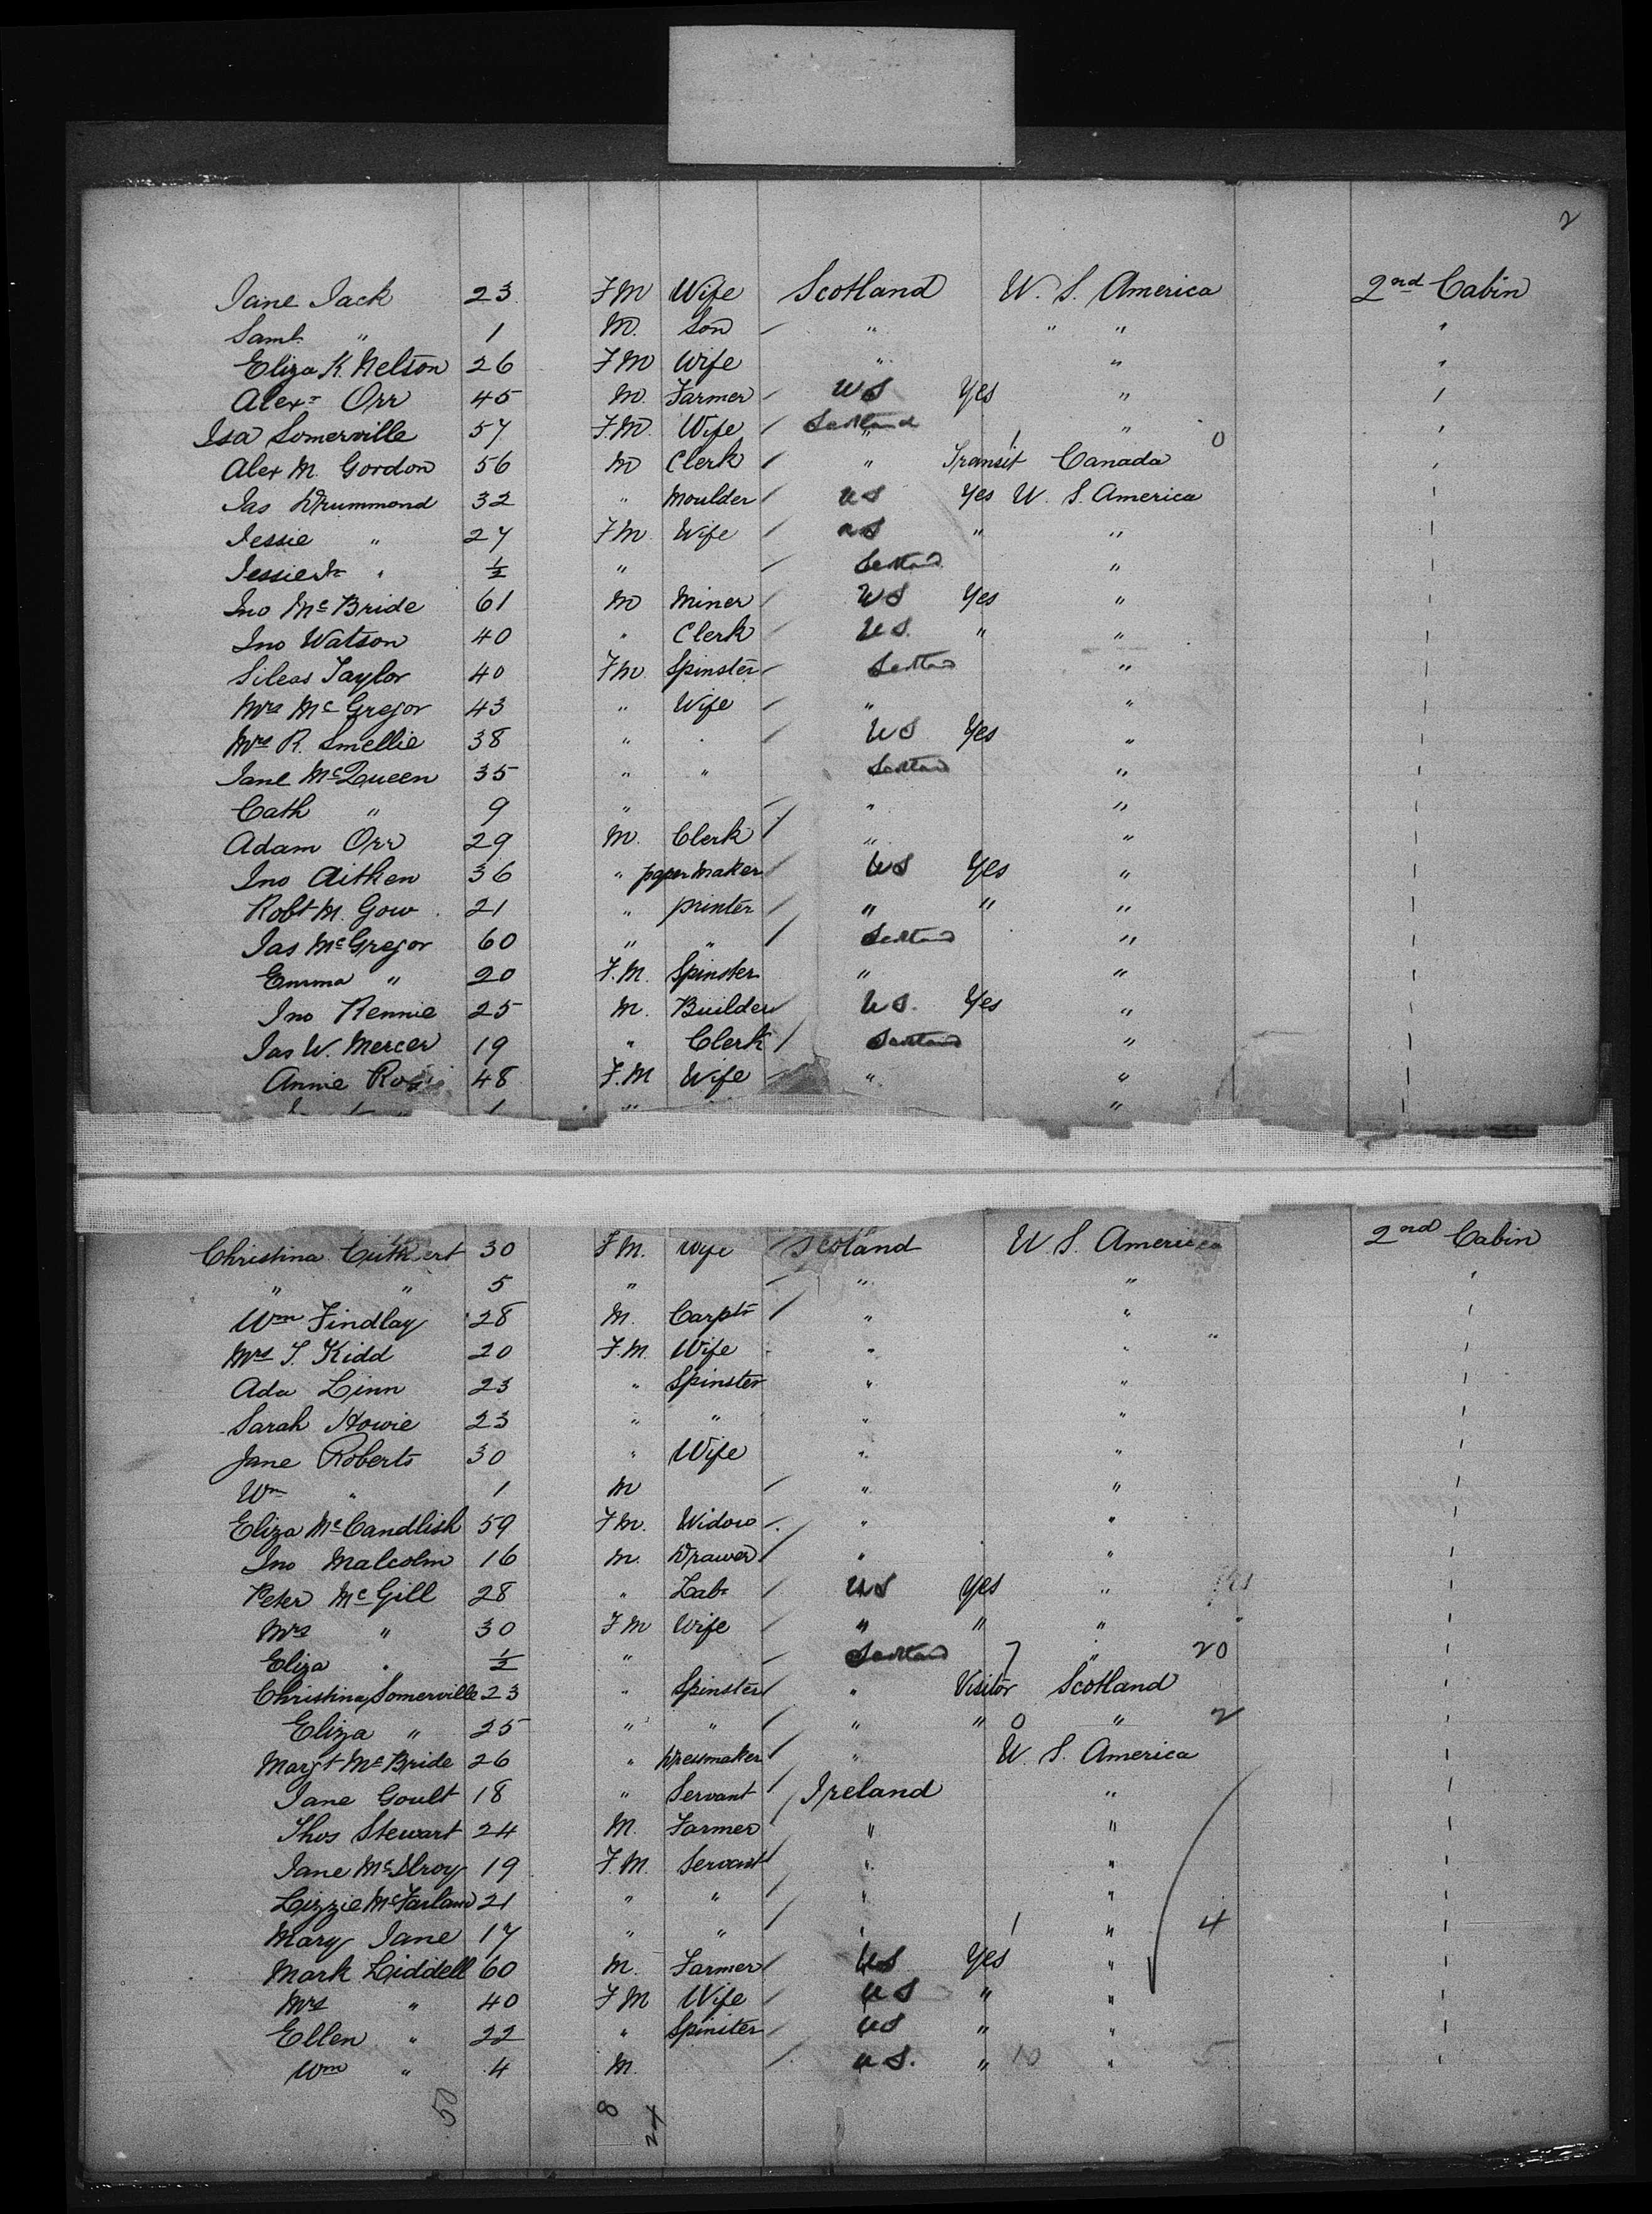 2
Jane Jack 23 F M Wife Scotland U. S. America 2nd Cabin
Saml. " 1 M. Son " " " "
Eliza K. Nelson 26 F M Wife " " "
Alexr Orr 45 M. Farmer US Yes "
Isa Somerville 57 F.M. Wife Scotland " 1 " 0
Alex M. Gordon 56 M Clerk " Transit Canada
Jas Drummond 32 " Moulder US Yes U. S. America
Jessie " 27 F M. Wife US " "
Jessie Jr " ½ " Scotland "
Jno McBride 61 M Miner US Yes "
Jno Watson 40 " Clerk US. " "
Sileas Taylor 40 F M. Spinster Scotland "
Mrs McGregor 43 " Wife " "
Mrs R. Smellie 38 " " US Yes "
Jane McQueen 35 " " Scotland "
Cath " 9 " " "
Adam Orr 29 M. Clerk " "
Jno Aitken 36 " paper maker US Yes "
Robt M. Gow 21 " printer " " "
Jas McGregor 60 " " Scotland "
Emma " 20 F.M. Spinster " "
Jno Rennie 25 M. Builder US. Yes "
Jas W. Mercer 19 " Clerk Scotland "
Annie 48 F.M Wife " "
" 1 " "
Christina Cuthbert 30 F M. Wife Scotland U. S. America 2nd Cabin
" " 5 " " " "
Wm Findlay 28 M. Carptr " "
Mrs T. Kidd 20 F.M. Wife " " "
Ada Linn 23 " Spinster " "
Sarah Howie 23 " " " "
Jane Roberts 30 " Wife " "
Wm " 1 M " "
Eliza McCandlish 59 F M. Widow " "
Jno Malcolm 16 M. Drawer " "
Peter McGill 28 " Labr US Yes "
Mrs " 30 F M Wife " " "
Eliza " ½ " Scotland 7 " 20
Christina Somerville 23 " Spinster " Visitor Scotland
Eliza " 25 " " " " 0 " 2
Margt McBride 26 " Dressmaker " U. S. America
Jane Goult 18 " Servant Ireland "
Thos Stewart 24 M. Farmer " "
Jane McIlroy 19 F.M. Servant " "
Lizzie McFarland 21 " " " "
Mary Jane 17 " " " 1 " 4
Mark Liddell 60 M. Farmer US Yes "
Mrs " 40 F M Wife US " "
Ellen " 22 " Spinster US " "
Wm " 4 M. U S. " 10 " 5
50 8 24